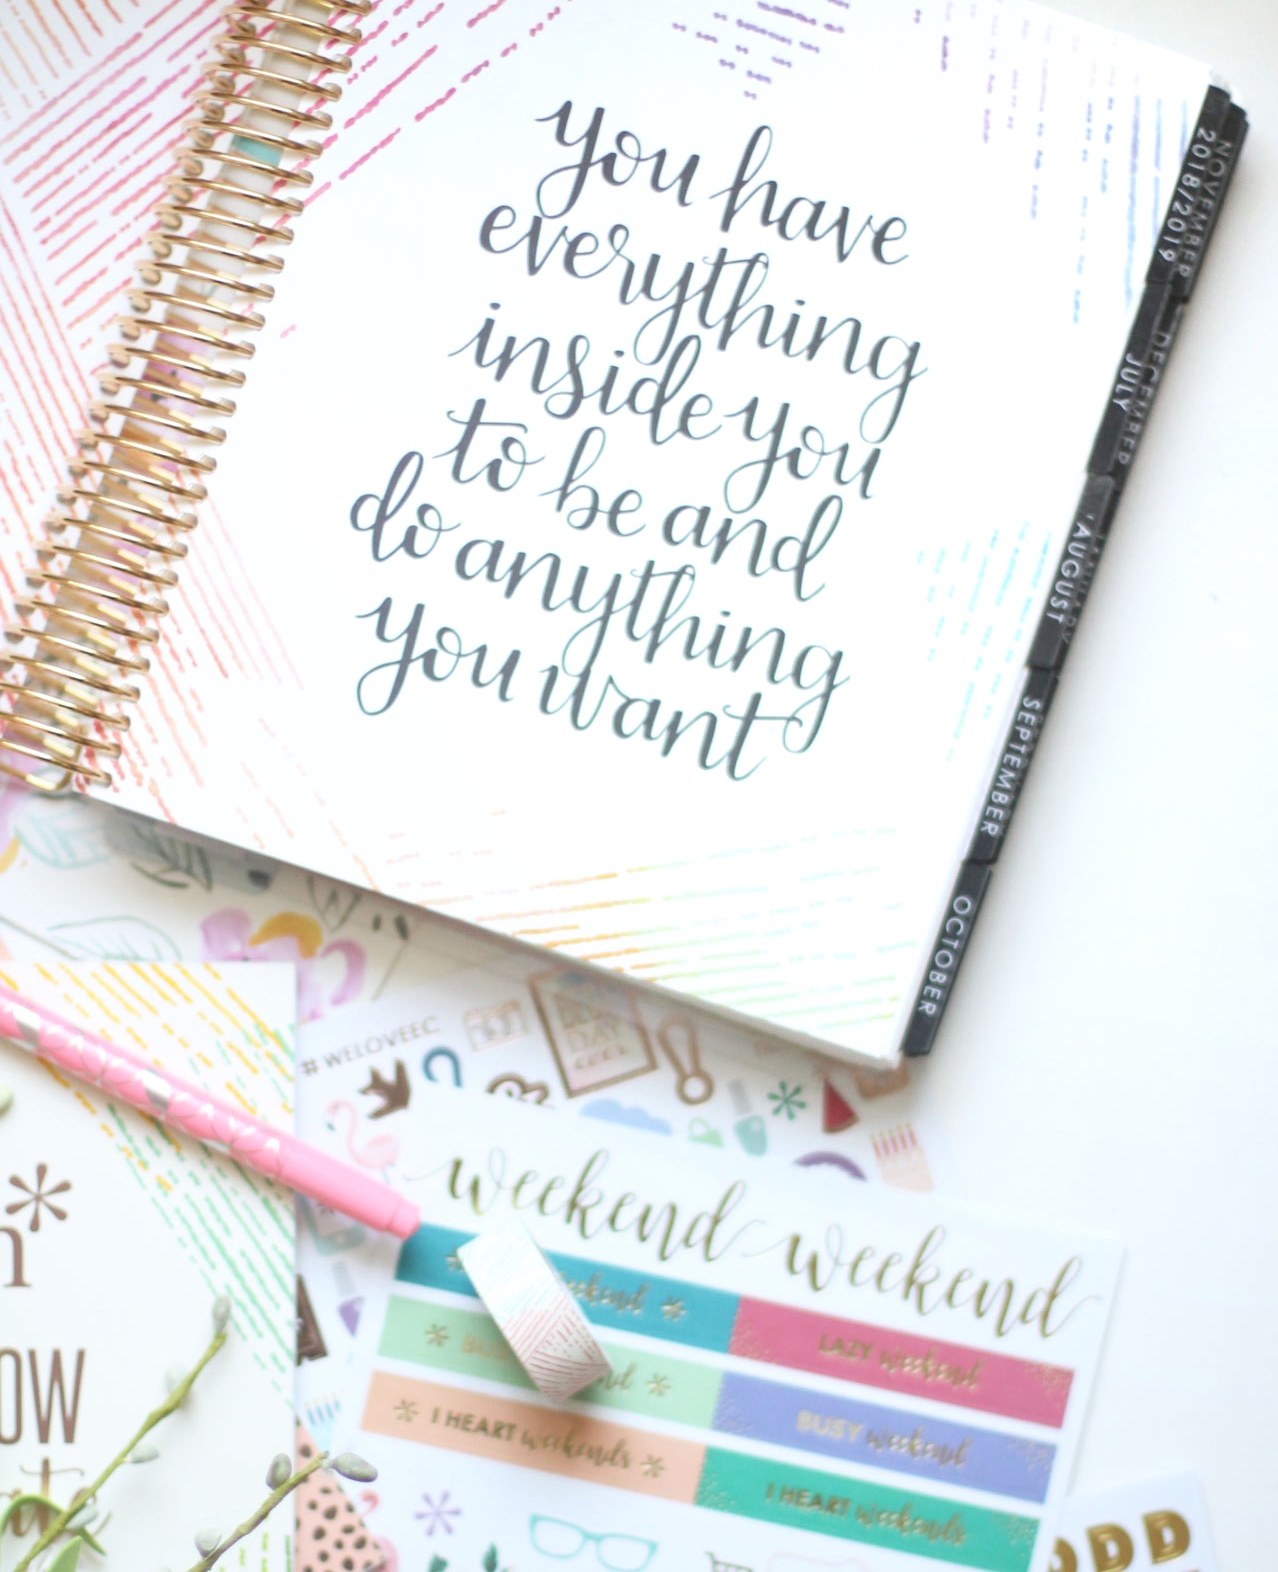 you have
everything
inside you
to be and
do anything
you want
NOVEMBER
2018/2019
DECEMBER
JULY
AUGUST
SEPTEMBER
OCTOBER
#WELOVEEC
weekend weekend
LAZY weekend
BUSY weekend
I HEART weekends
I HEART weekends